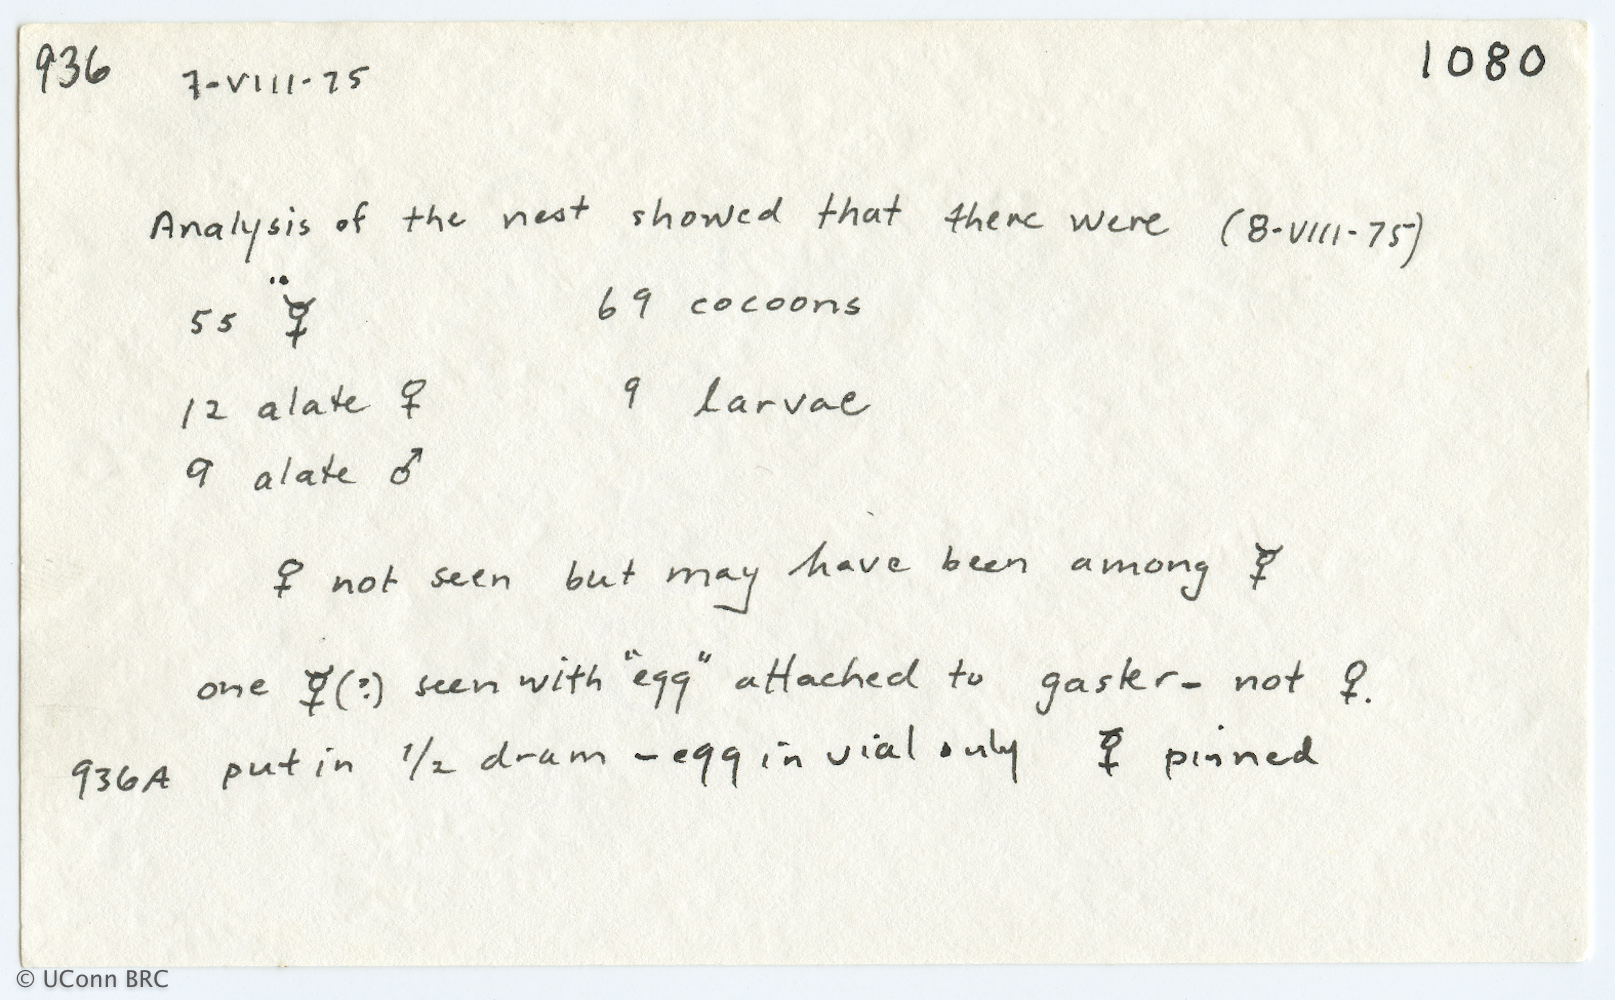 936 7-VIII-75 1080
Analysis of the nest showed that there were (8-VIII-75)
55 ☿ 69 cocoons
12 alate ♀ 9 larvae
9 alate ♂
♀ not seen but may have been among ☿
one ☿(?) seen with "egg" attached to gaster - not ♀.
936A put in 1/2 dram - egg in vial only ☿ pinned
© UConn BRC